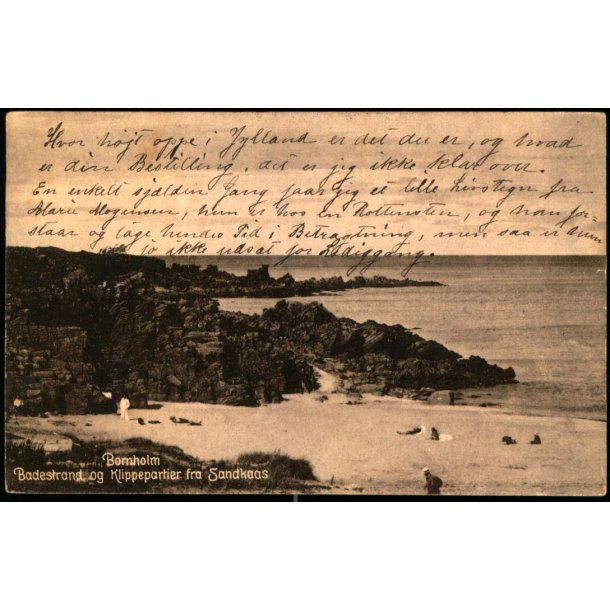 Hvor højt oppe i Jylland er det du er, og hvad
er din Bestilling, det er jeg ikke klar over.
En enkelt sjælden Gang faar jeg et lille Livstegn fra
Marie Mogensen, hun er hos en Rottensten, og han for-
staar at tage hendes Tid i Betragtning, men saa er hun
jo ikke udsat for Lediggang.
Bornholm
Badestrand og Klippepartier fra Sandkaas